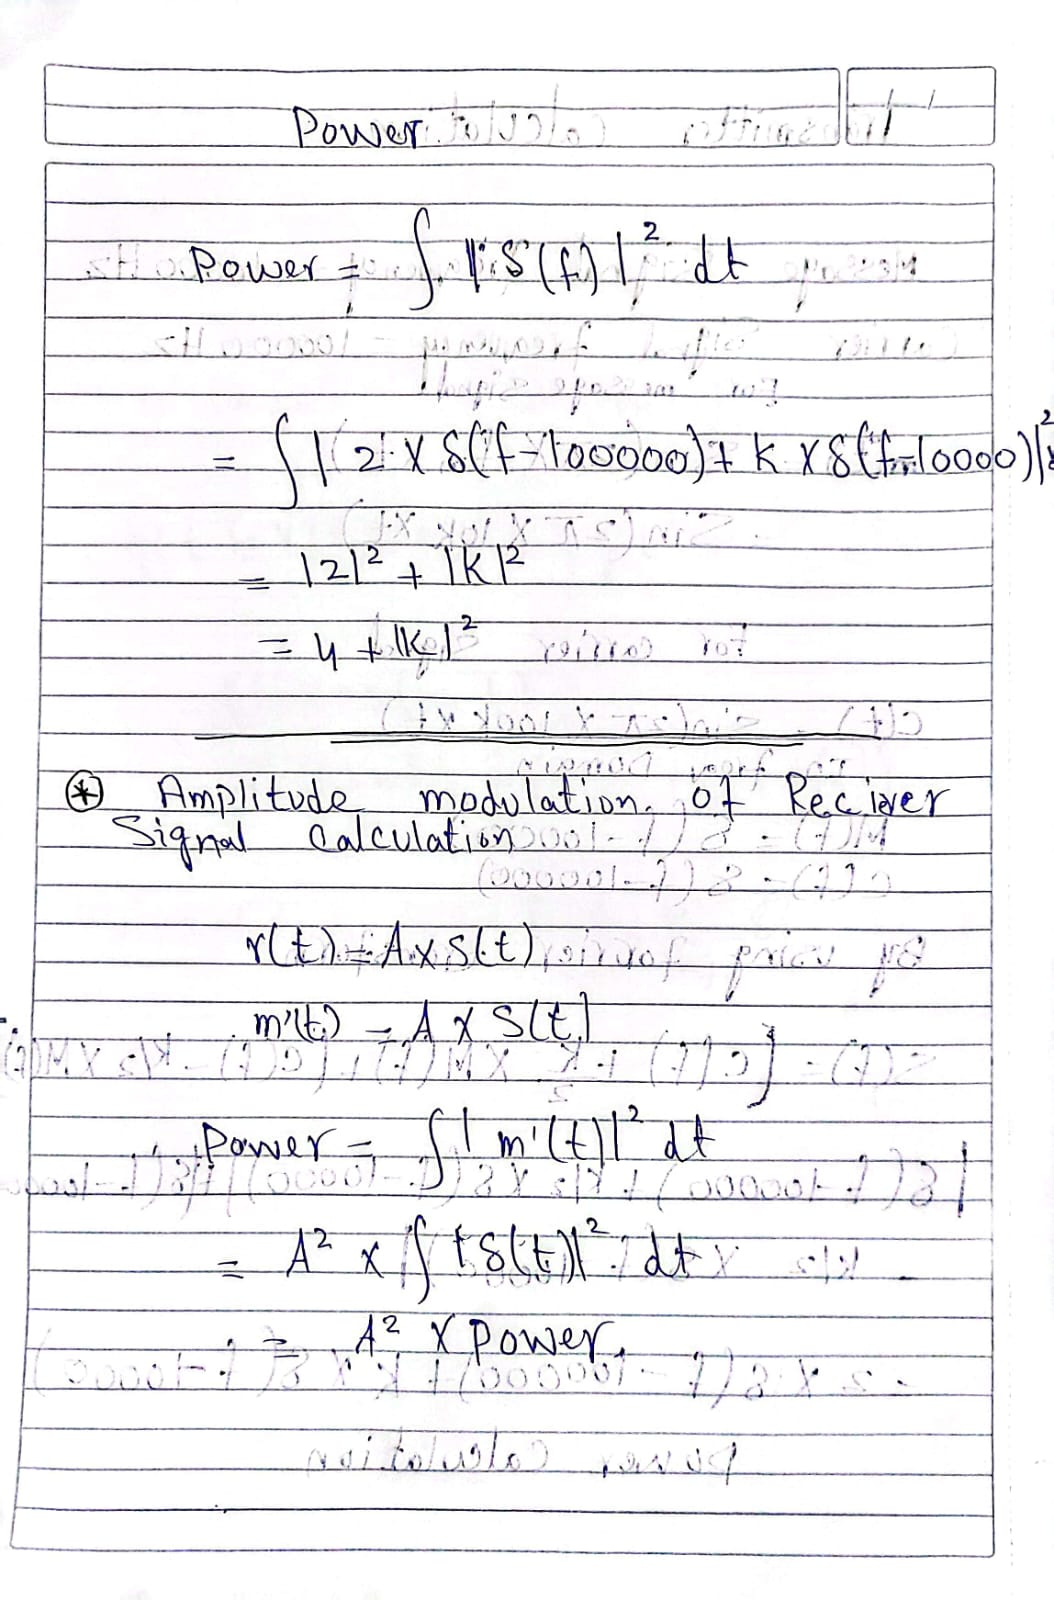 Power
Power = ∫ |S(f)|² dt
= ∫ | 2 X δ(f-100000) + K X δ(f-10000)|²
= |2|² + |K|²
= 4 + |K|²
* Amplitude modulation of Reciever
Signal Calculation
r(t) = A x s(t)
m'(t) = A X S(t)
Power = ∫ | m'(t)|² dt
= A² x ∫ |S(t)|² dt
= A² X Power.